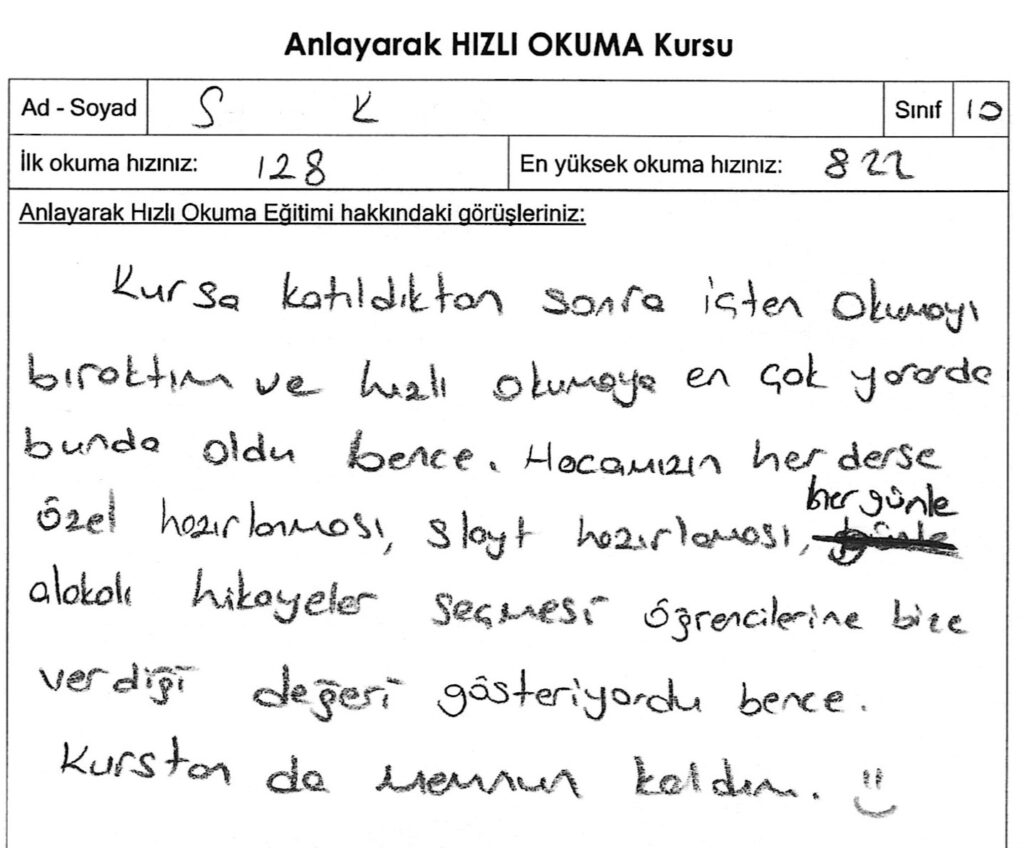 Anlayarak HIZLI OKUMA Kursu
Ad - Soyad S K Sınıf 10
İlk okuma hızınız: 128 En yüksek okuma hızınız: 822
Anlayarak Hızlı Okuma Eğitimi hakkındaki görüşleriniz:
Kursa katıldıktan sonra içten okumayı
bıraktım ve hızlı okumaya en çok yararda
bunda oldu bence. Hocamızın her derse
özel hazırlanması, slayt hazırlaması, her günle
alakalı hikayeler seçmesi öğrencilerine bize
verdiği değeri gösteriyordu bence.
Kurstan da memnun kaldım.